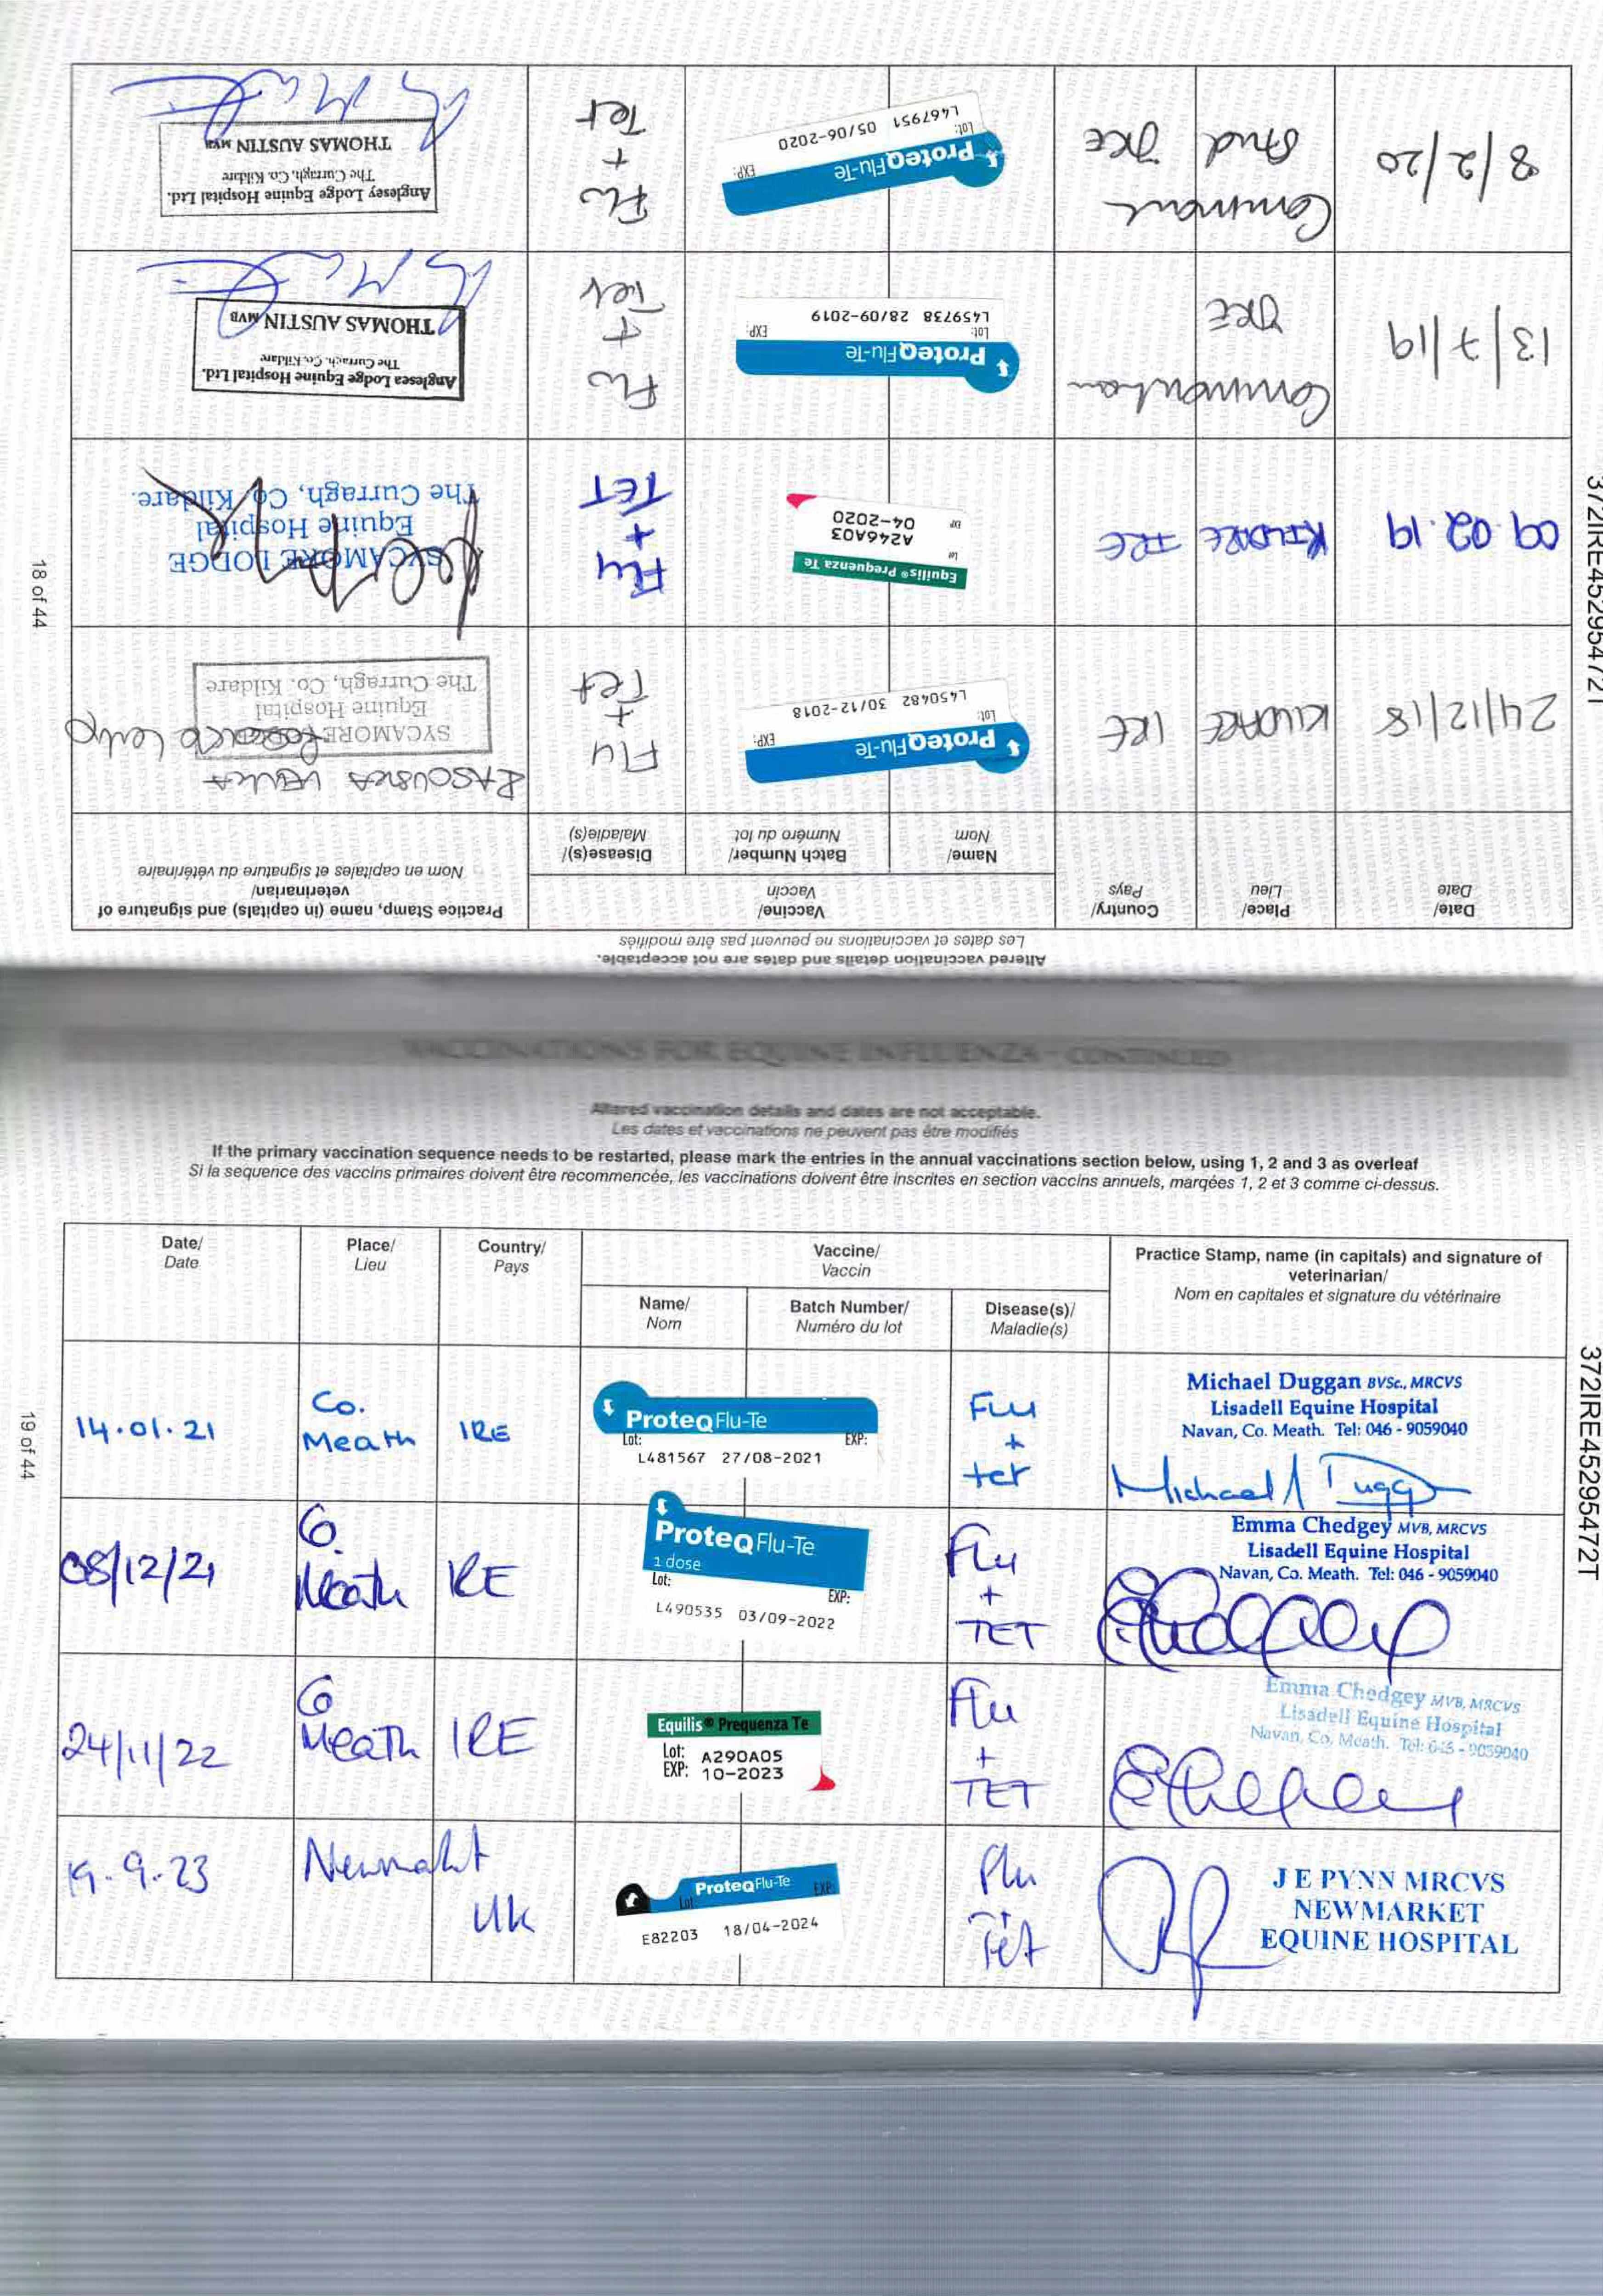 Altered vaccination details and dates are not acceptable.
Les dates et vaccinations ne peuvent pas être modifiés
Date/
Date
Place/
Lieu
Country/
Pays
Vaccine/
Vaccin
Name/
Nom
Batch Number/
Numéro du lot
Disease(s)/
Maladie(s)
Practice Stamp, name (in capitals) and signature of
veterinarian/
Nom en capitales et signature du vétérinaire
24/12/18
KILDARE
IRE
ProteqFlu-Te
Lot: EXP:
L450482 30/12-2018
Flu
+
Tet
SYCAMORE
Equine Hospital
The Curragh, Co. Kildare
09.02.19
KILDARE
IRE
Equilis® Prequenza Te
Lot A246A03
EXP 04-2020
Flu
+
TET
SYCAMORE LODGE
Equine Hospital
The Curragh, Co. Kildare.
13/7/19
IRE
ProteqFlu-Te
Lot: EXP:
L459738 28/09-2019
Flu
+
Tet
Anglesea Lodge Equine Hospital Ltd.
The Curragh, Co. Kildare
THOMAS AUSTIN MVB
8/2/20
Stud
IRE
ProteqFlu-Te
Lot: EXP:
L467951 05/06-2020
Flu
+
Tet
Anglesey Lodge Equine Hospital Ltd.
The Curragh, Co. Kildare
THOMAS AUSTIN MVB
18 of 44
372IRE45295472T
VACCINATIONS FOR EQUINE INFLUENZA - CONTINUED
Altered vaccination details and dates are not acceptable.
Les dates et vaccinations ne peuvent pas être modifiés
If the primary vaccination sequence needs to be restarted, please mark the entries in the annual vaccinations section below, using 1, 2 and 3 as overleaf
Si la sequence des vaccins primaires doivent être recommencée, les vaccinations doivent être inscrites en section vaccins annuels, marqées 1, 2 et 3 comme ci-dessus.
Date/
Date
Place/
Lieu
Country/
Pays
Vaccine/
Vaccin
Name/
Nom
Batch Number/
Numéro du lot
Disease(s)/
Maladie(s)
Practice Stamp, name (in capitals) and signature of
veterinarian/
Nom en capitales et signature du vétérinaire
14.01.21
Co.
Meath
IRE
ProteqFlu-Te
Lot: EXP:
L481567 27/08-2021
Flu
+
tet
Michael Duggan BVSc., MRCVS
Lisadell Equine Hospital
Navan, Co. Meath. Tel: 046 - 9059040
Michael Duggan
08/12/21
Co.
Meath
IRE
ProteqFlu-Te
1 dose
Lot: EXP:
L490535 03/09-2022
Flu
+
TET
Emma Chedgey MVB, MRCVS
Lisadell Equine Hospital
Navan, Co. Meath. Tel: 046 - 9059040
24/11/22
Co
Meath
IRE
Equilis® Prequenza Te
Lot: A290A05
EXP: 10-2023
Flu
+
TET
Emma Chedgey MVB, MRCVS
Lisadell Equine Hospital
Navan, Co. Meath. Tel: 046 - 9059040
19.9.23
Newmarket
UK
ProteqFlu-Te
Lot: EXP:
E82203 18/04-2024
Flu
+
Tet
J E PYNN MRCVS
NEWMARKET
EQUINE HOSPITAL
19 of 44
372IRE45295472T